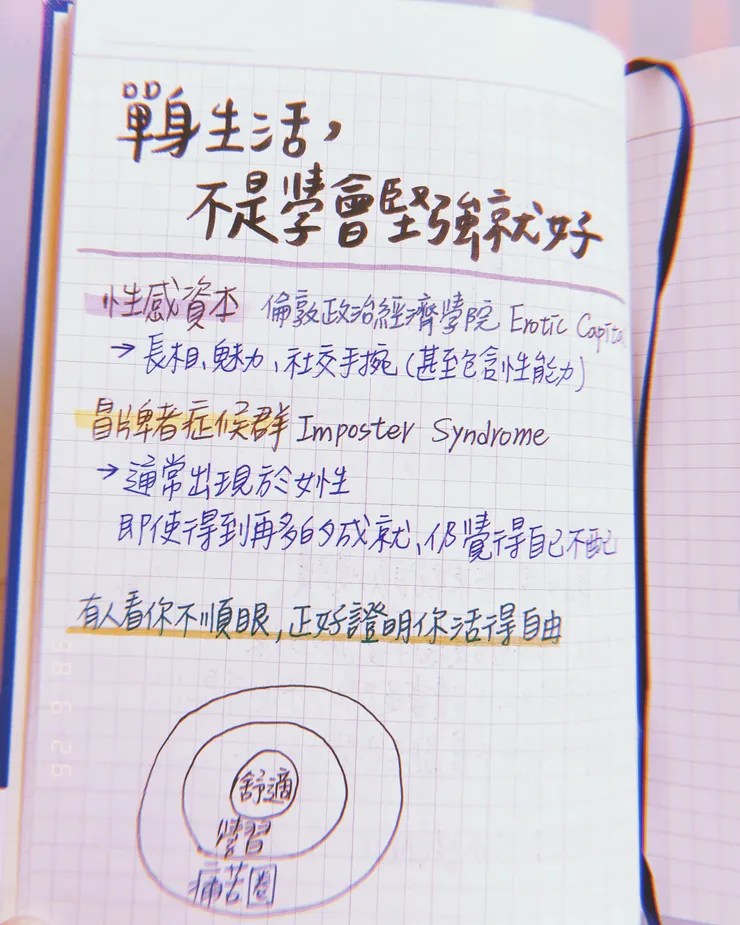 單身生活,
不是學會堅強就好
性感資本 倫敦政治經濟學院 Erotic Capital
→ 長相、魅力、社交手腕(甚至包含性能力)
冒牌者症候群 Imposter Syndrome
→ 通常出現於女性
即使得到再多的成就、仍覺得自己不配
有人看你不順眼,正好證明你活得自由
舒適
學習
痛苦圈
98 6 26